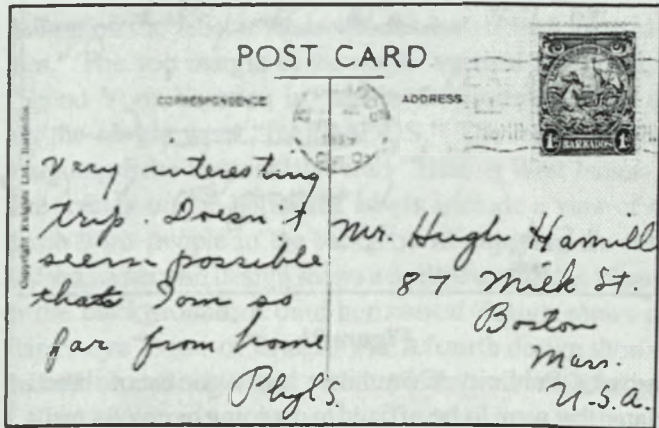 POST CARD
CORRESPONDENCE
ADDRESS
1D BARBADOS 1D
Copyright Knights Ltd., Barbados
Very interesting
trip. Doesn't
seem possible
thats I am so
far from home
Phyl S.
Mr. Hugh Hamill
87 Milk St.
Boston
Mass.
U-S.A.